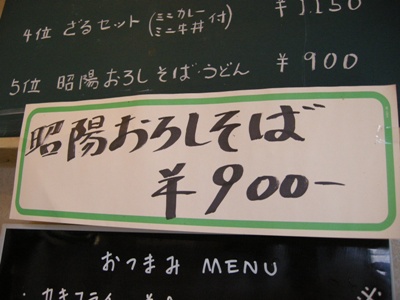 4位 ざるセット (ミニカレー ミニ牛丼 付) ¥1,150
5位 昭陽おろしそば・うどん ¥900
昭陽おろしそば
¥900-
おつまみ MENU
・カキフライ